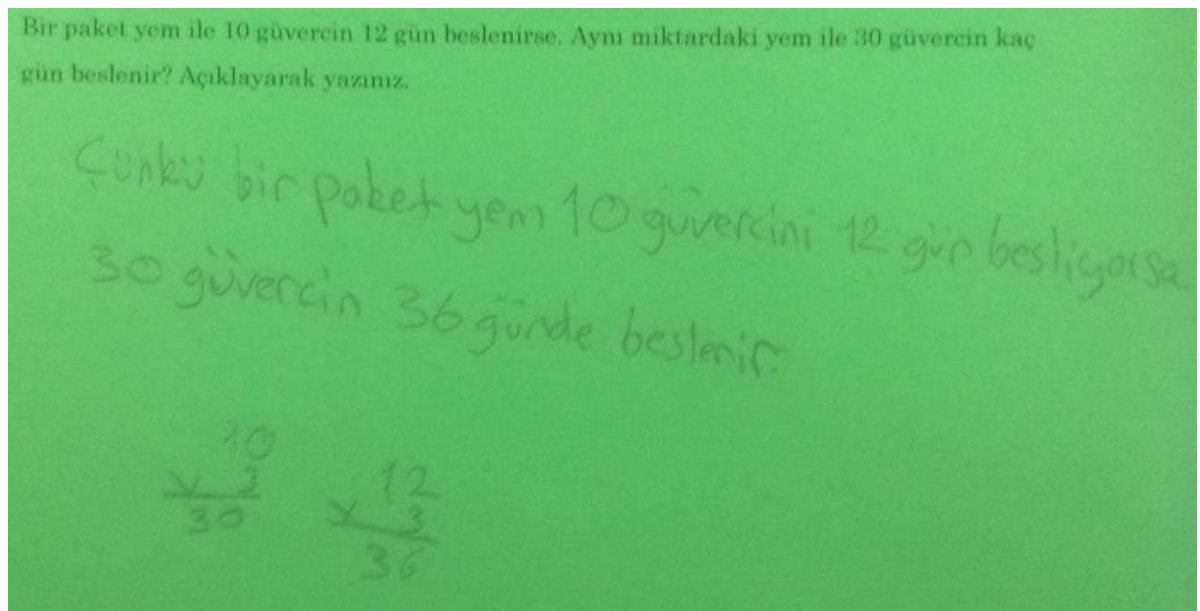 Bir paket yem ile 10 güvercin 12 gün beslenirse. Aynı miktardaki yem ile 30 güvercin kaç
gün beslenir? Açıklayarak yazınız.
Çünkü bir paket yem 10 güvercini 12 gün besliyorsa
30 güvercin 36 günde beslenir.
10
x 3
30
12
x 3
36